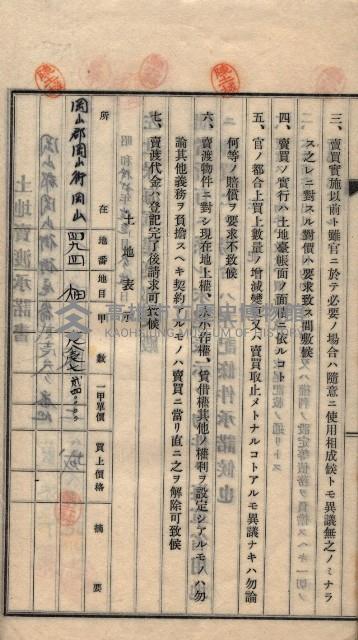 三、賣買實施以前ト雖官ニ於テ必要ノ場合ハ隨意ニ使用相成候トモ異議無之ノミナラ
ス之レニ對スル對價ハ要求致ス間敷候
四、賣買ノ實行ハ土地臺帳面ノ面積ニ依ルコト
五、官ノ都合上買上數量ノ增減變更又ハ賣買取止メトナルコトアルモ異議ナキハ勿論
何等ノ賠償ヲ要求不致候
六、賣渡物件ニ對シ現在地上權、永小作權、賃借權其他ノ權利ヲ設定シアルモノハ勿
論其他義務ヲ負擔スヘキ契約アルモノハ賣買ニ當リ直ニ之ヲ解除可致候
七、賣渡代金ハ登記完了後請求可致候
土地表
所在 地番 地目 甲數 一甲單價 買上價格 摘要
岡山郡岡山街岡山
高雄市立歷史博物館
KAOHSIUNG MUSEUM OF HISTORY